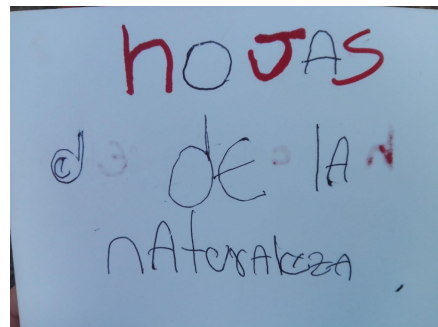 hOJAS
d dE lA
nAturAlezA